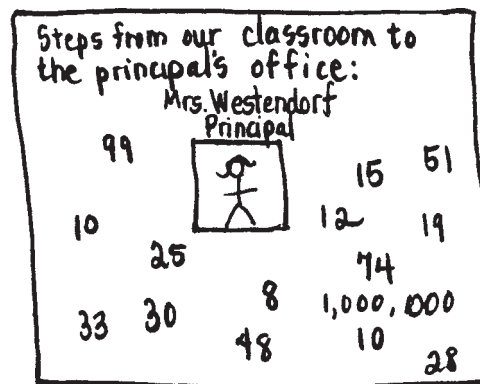 Steps from our classroom to
the principal's office:
Mrs. Westendorf
Principal
99
15
51
10
12
19
25
74
8
1,000,000
33
30
48
10
28